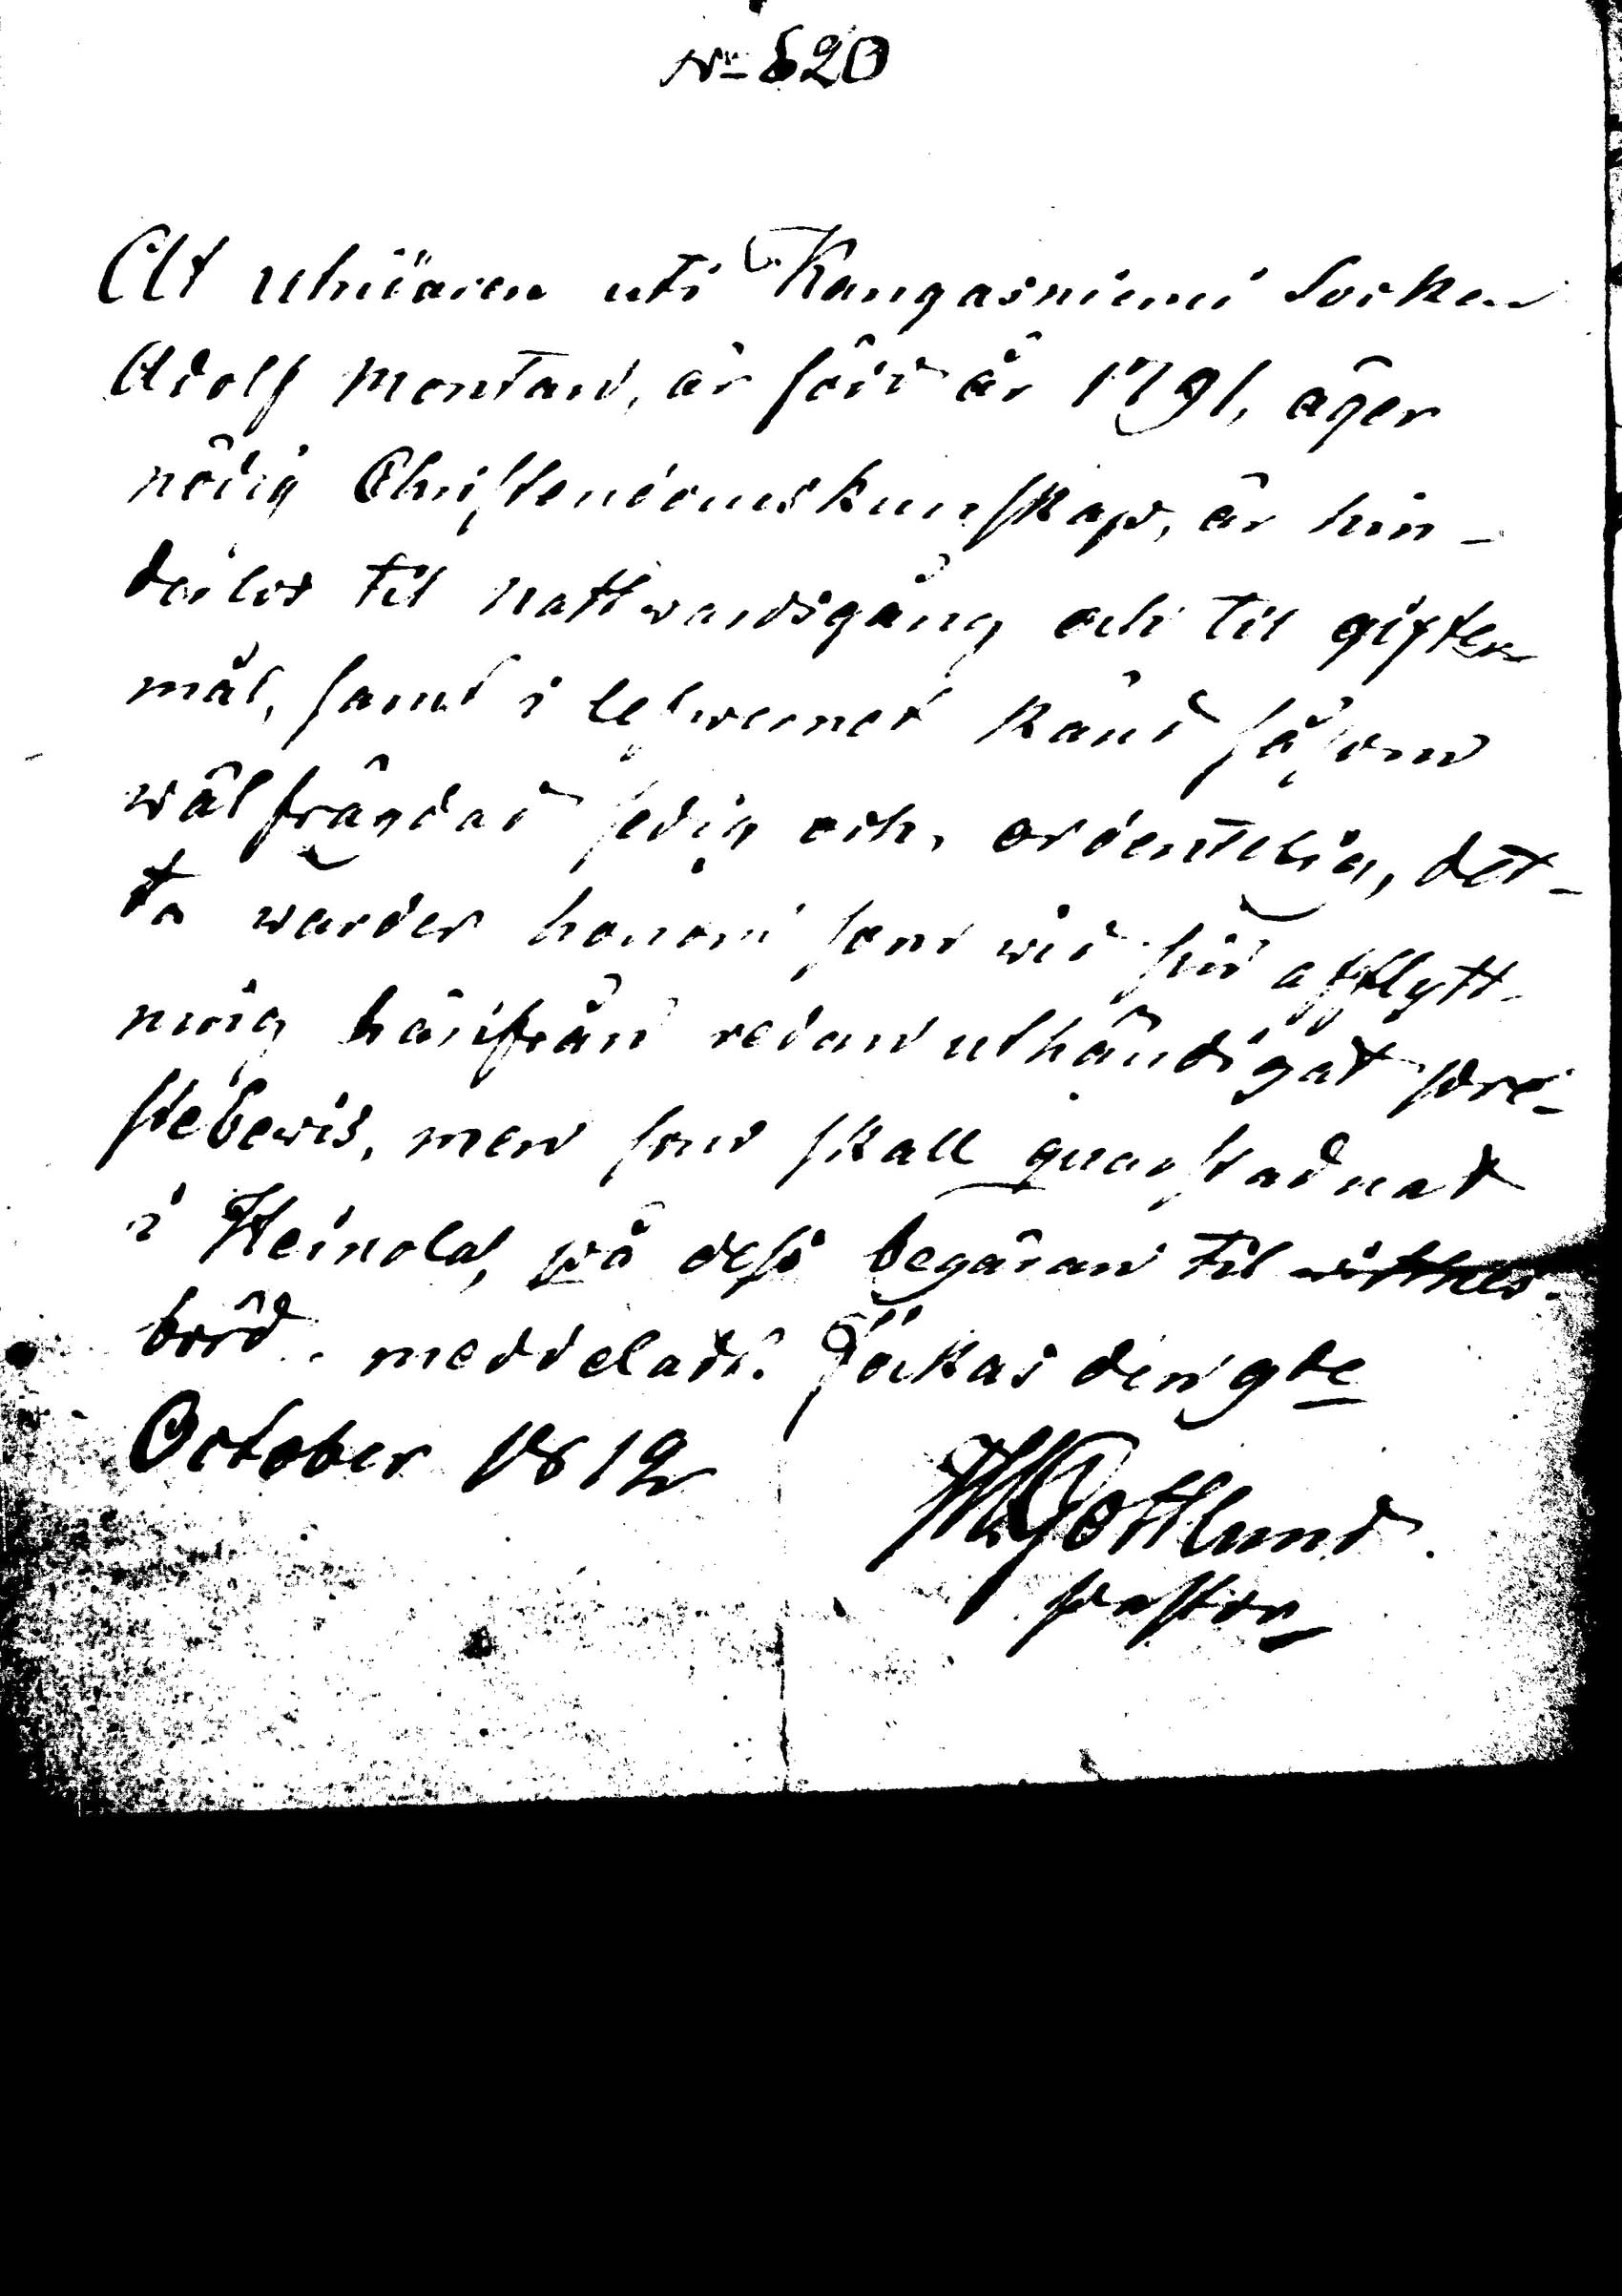 No 820
At Uhriären uti Kangasniemi Socken
Adolf Montan, är född år 1791, äger
nödig Christendomskunskap, är hin-
derlös til nattwardsgång och til gifter
mål, samt i lefwernet känd såsom
wälfrägdad sedig och ordentelig, det-
ta warder honom som wid sin afflytt-
ning härifrån redan uthändigat pre-
stebewis, men som skall quarstadnat
i Heinola, på dess begäran til witnes-
börd meddeladt. Jockas den 9de
October 1812
Gottlund
pastor